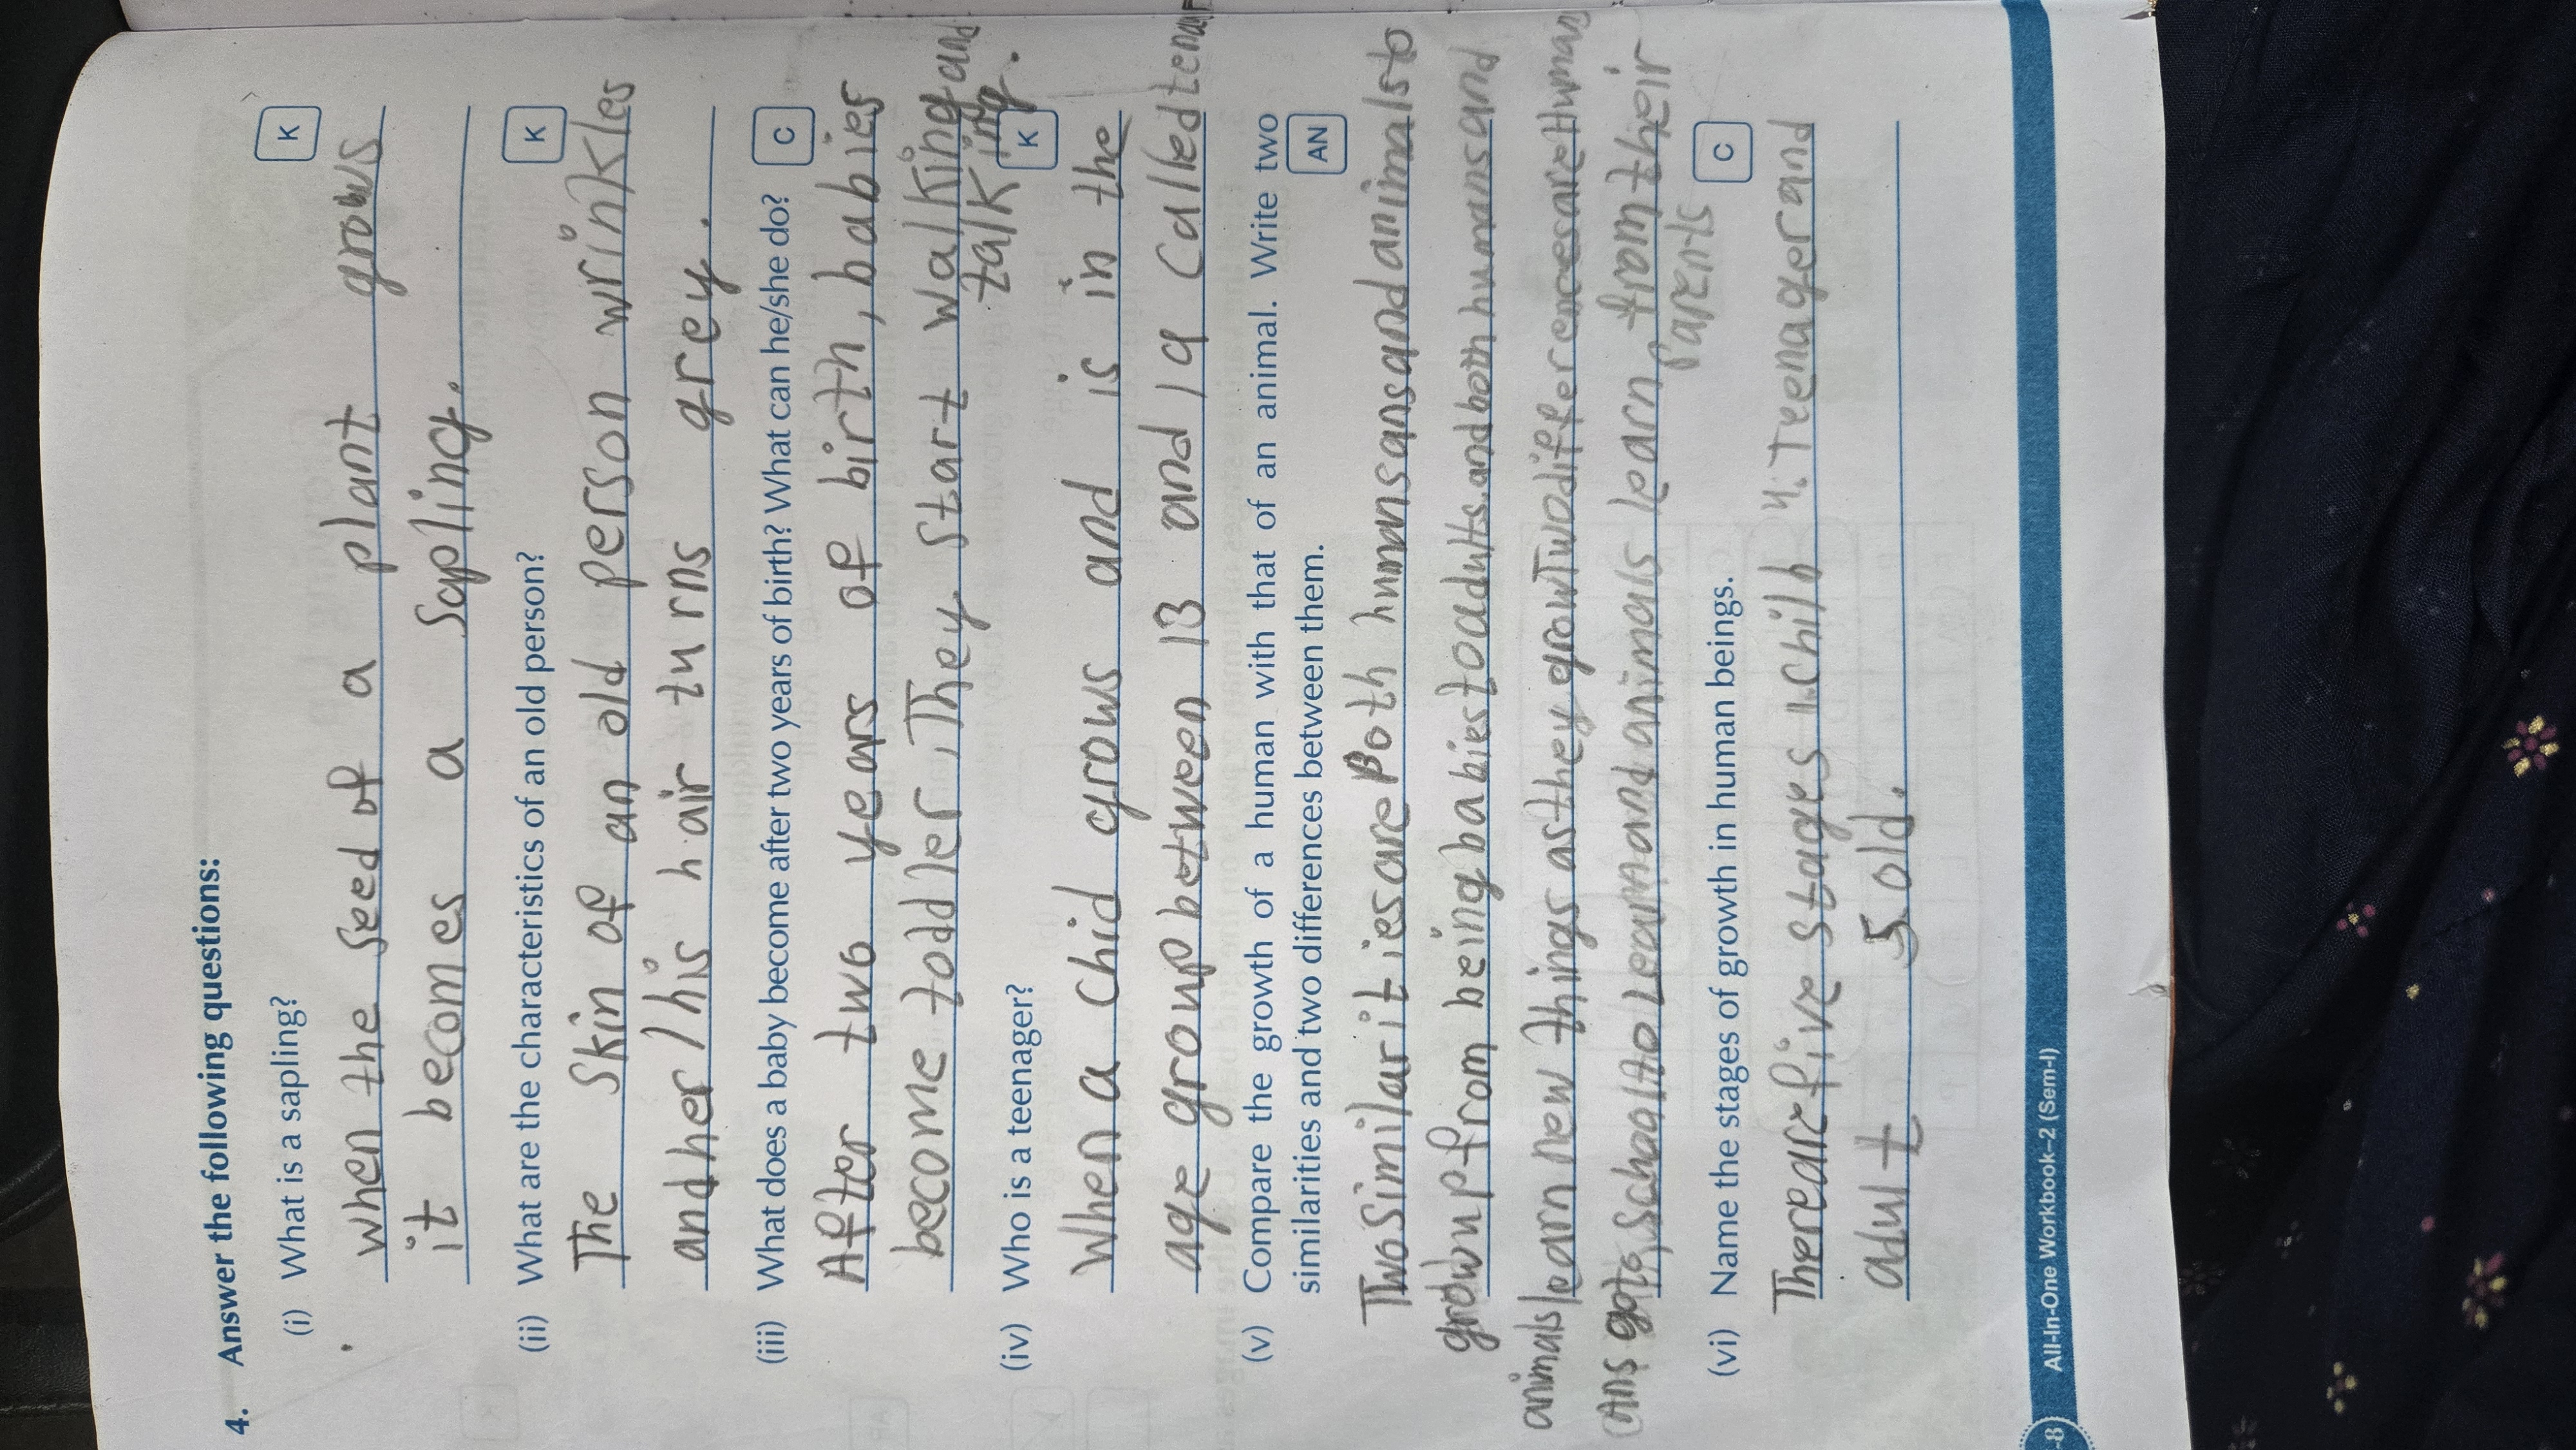 4. Answer the following questions:
(i) What is a sapling? K
when the seed of a plant grows
it becomes a sapling.
(ii) What are the characteristics of an old person? K
The skin of an old person wrinkles
and her / his hair turns grey.
(iii) What does a baby become after two years of birth? What can he/she do? C
After two years of birth, babies
become toddler. They start walking and
talking.
(iv) Who is a teenager? K
When a chid grows and is in the
age group between 13 and 19 called
(v) Compare the growth of a human with that of an animal. Write two
similarities and two differences between them. AN
Two similarities are Both humans and animals
grow up from being babies to adults. and both humans and
animals learn new things as they grow Two differences are Human
go to school to learn and animals learn from their
parents
(vi) Name the stages of growth in human beings. C
There are five stages child 4. Teenager and
adult 5. old.
8 All-In-One Workbook–2 (Sem-I)